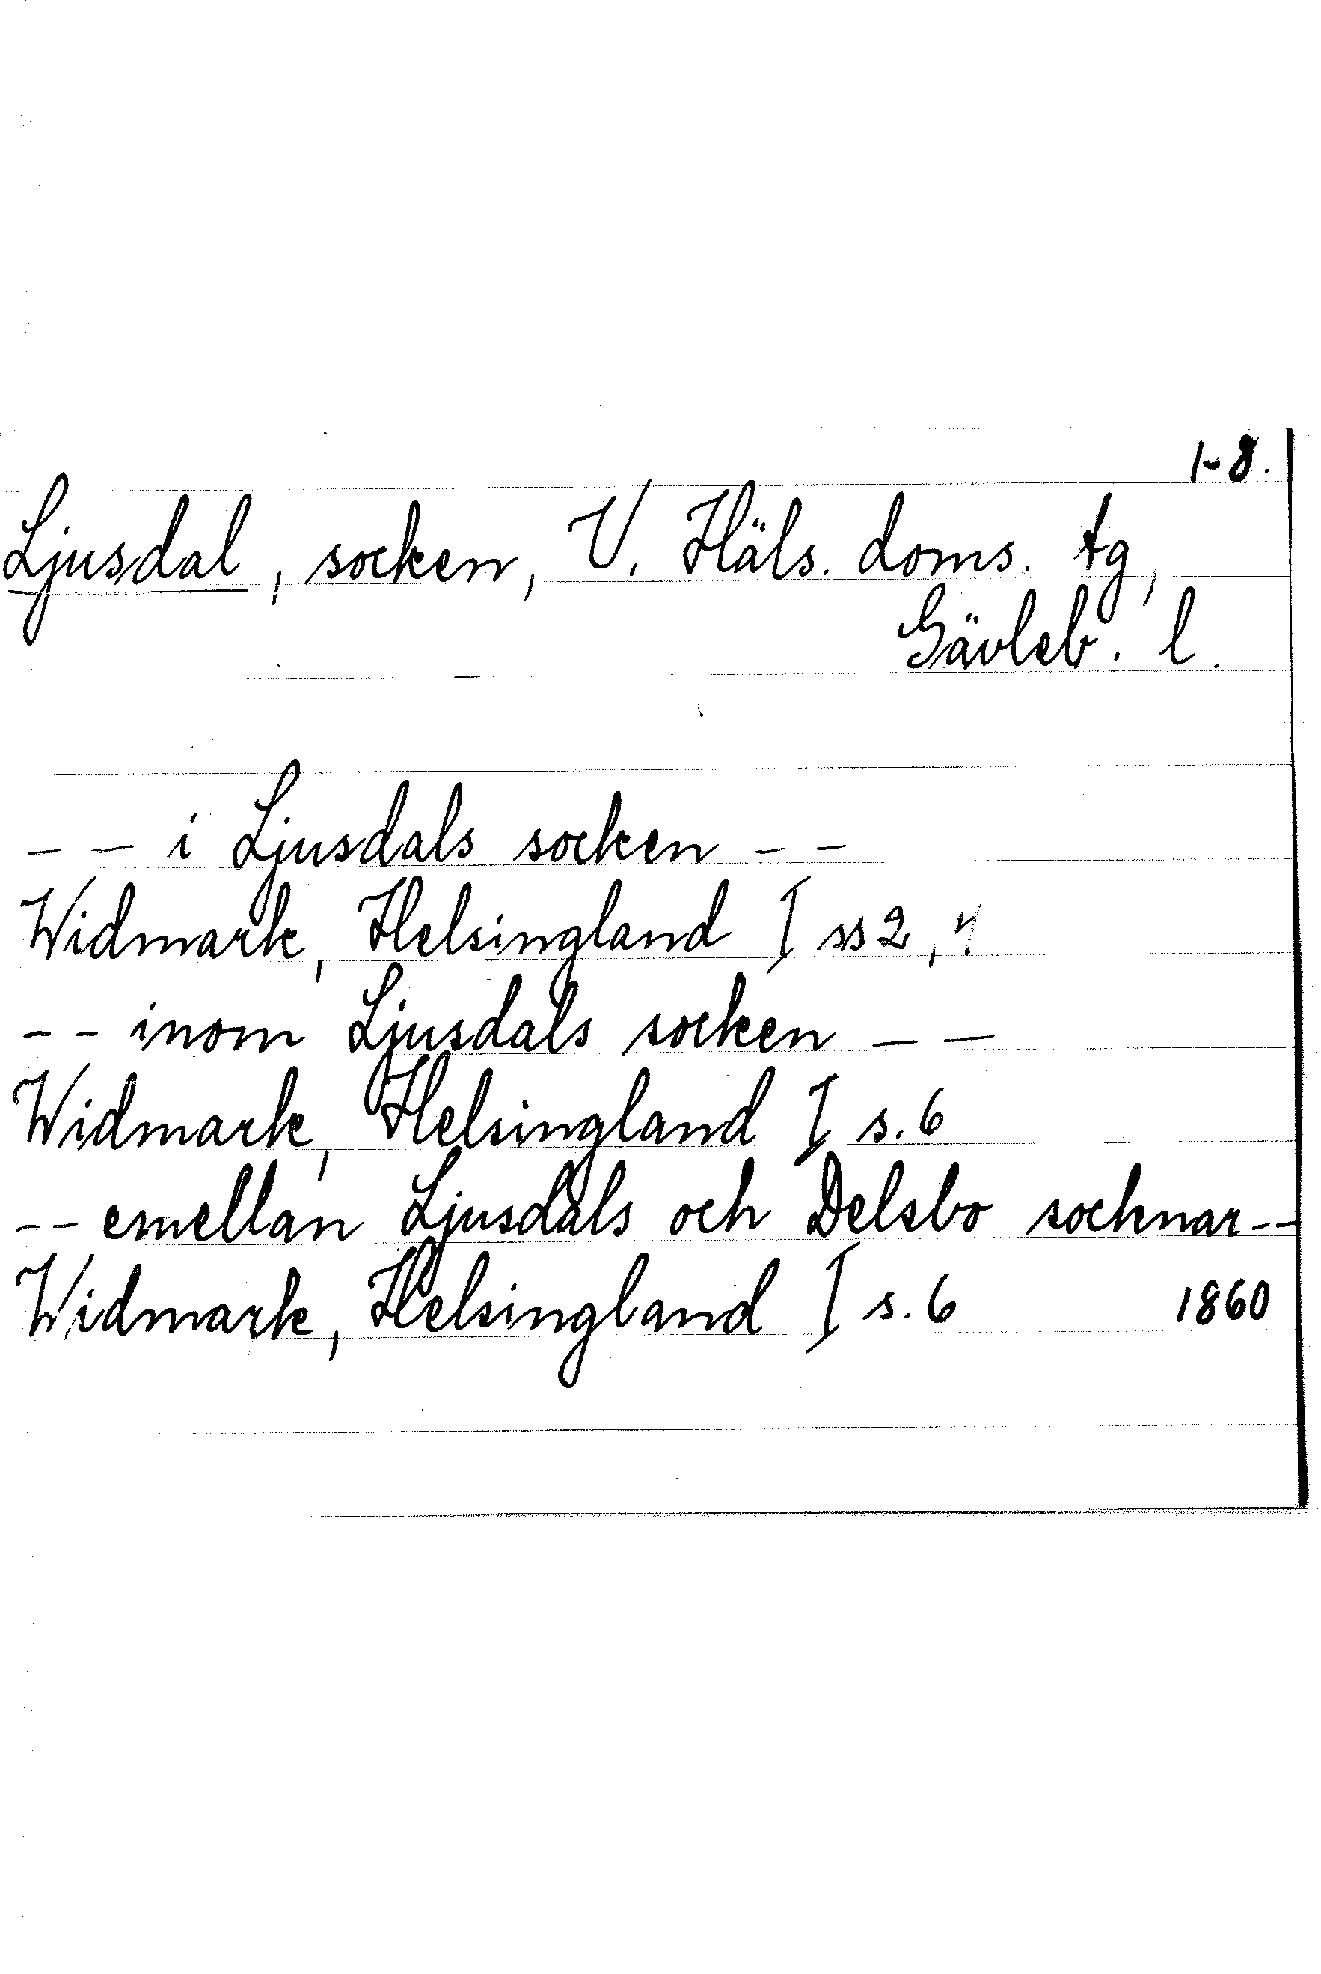 1-8.
Ljusdal, socken, V. Häls. doms. tg,
Gävleb. l.
-- i Ljusdals socken --
Widmark, Helsingland I ss 2, 4
-- inom Ljusdals socken --
Widmark, Helsingland I s. 6
-- emellan Ljusdals och Delsbo socknar --
Widmark, Helsingland I s. 6 1860